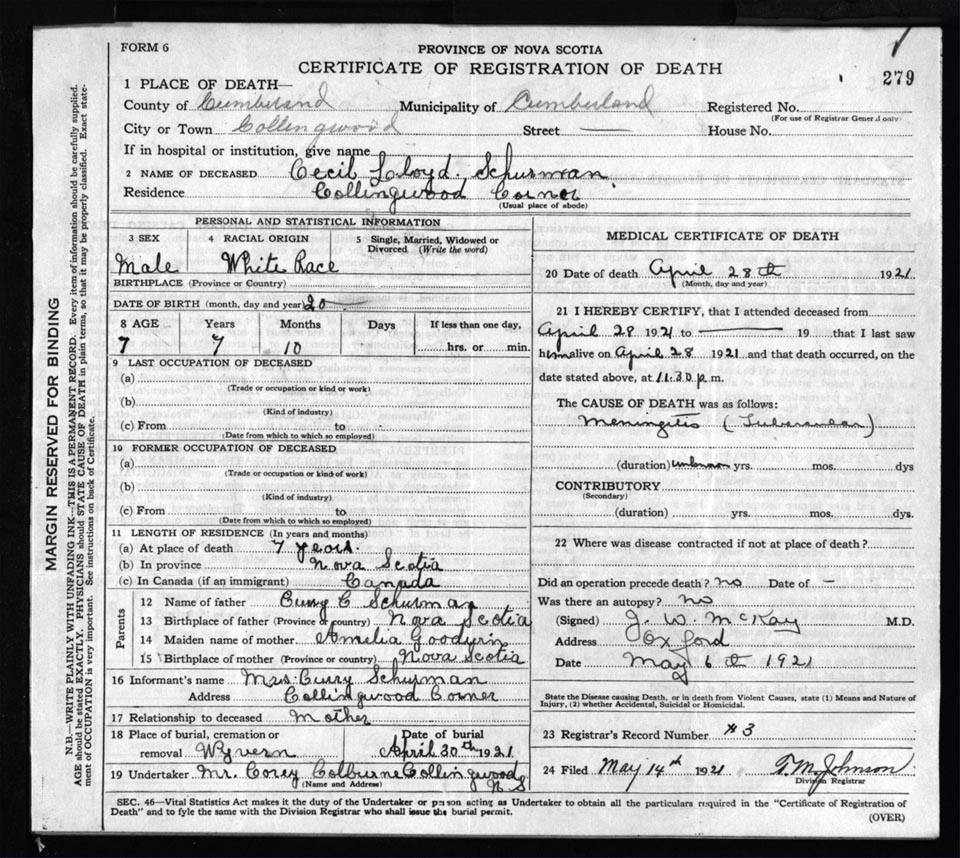 FORM 6
PROVINCE OF NOVA SCOTIA
CERTIFICATE OF REGISTRATION OF DEATH
279
1 PLACE OF DEATH—
County of Cumberland Municipality of Cumberland Registered No.
(For use of Registrar General only)
City or Town Collingwood Street — House No.
If in hospital or institution, give name
2 NAME OF DECEASED Cecil Lloyd Schurman
Residence Collingwood Corner
(Usual place of abode)
PERSONAL AND STATISTICAL INFORMATION
3 SEX 4 RACIAL ORIGIN 5 Single, Married, Widowed or Divorced (Write the word)
Male White Race
BIRTHPLACE (Province or Country)
DATE OF BIRTH (month, day and year) 20
8 AGE Years Months Days If less than one day,
7 7 10 hrs. or min.
9 LAST OCCUPATION OF DECEASED
(a)
(Trade or occupation or kind or work)
(b)
(Kind of industry)
(c) From to
(Date from which to which so employed)
10 FORMER OCCUPATION OF DECEASED
(a)
(Trade or occupation or kind of work)
(b)
(Kind of industry)
(c) From to
(Date from which to which so employed)
11 LENGTH OF RESIDENCE (In years and months)
(a) At place of death 7 years.
(b) In province Nova Scotia
(c) In Canada (if an immigrant) Canada
Parents
12 Name of father C Schurman
13 Birthplace of father (Province or country) Nova Scotia
14 Maiden name of mother Amelia
15 Birthplace of mother (Province or country) Nova Scotia
16 Informant's name Mrs. Schurman
Address Collingwood Corner
17 Relationship to deceased Mother
18 Place of burial, cremation or removal Wyvern
Date of burial April 30th 1921
19 Undertaker Mr. Corey Colburne Collingwood N.S
(Name and Address)
MEDICAL CERTIFICATE OF DEATH
20 Date of death April 28th 1921
(Month, day and year)
21 I HEREBY CERTIFY, that I attended deceased from
April 28 1921 to — 19 that I last saw
him alive on April 28 1921 and that death occurred, on the
date stated above, at 11.30 p.m.
The CAUSE OF DEATH was as follows:
Meningitis (Tubercular)
(duration) unknown yrs. mos. dys
CONTRIBUTORY
(Secondary)
(duration) yrs. mos. dys.
22 Where was disease contracted if not at place of death?
Did an operation precede death? no Date of –
Was there an autopsy? no
(Signed) J. W. McKay M.D.
Address Oxford
Date May 6th 1921
State the Disease causing Death, or in death from Violent Causes, state (1) Means and Nature of
Injury, (2) whether Accidental, Suicidal or Homicidal.
23 Registrar's Record Number #3
24 Filed May 14th 1921 T. M. Johnson
Division Registrar
SEC. 46—Vital Statistics Act makes it the duty of the Undertaker or person acting as Undertaker to obtain all the particulars required in the "Certificate of Registration of
Death" and to fyle the same with the Division Registrar who shall issue the burial permit.
(OVER)
MARGIN RESERVED FOR BINDING
N.B.—WRITE PLAINLY WITH UNFADING INK—THIS IS A PERMANENT RECORD. Every item of information should be carefully supplied.
AGE should be stated EXACTLY. PHYSICIANS should STATE CAUSE OF DEATH in plain terms, so that it may be properly classified. Exact state-
ment of OCCUPATION is very important. See instructions on back of Certificate.